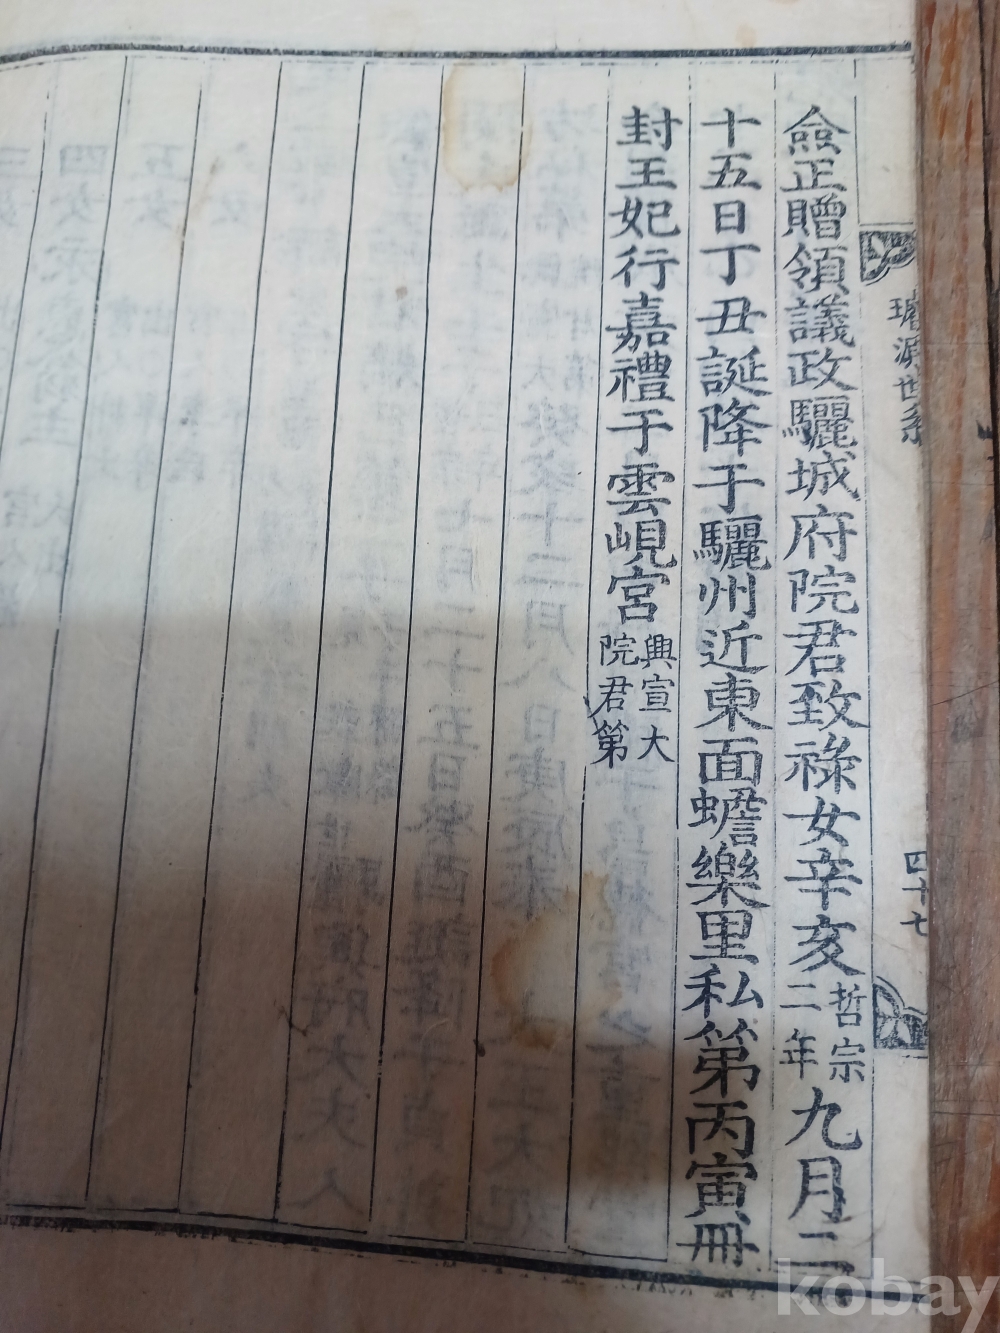 僉正贈領議政驪城府院君致祿女辛亥哲宗二年九月二
十五日丁丑誕降于驪州近東面蟾樂里私第丙寅冊
封王妃行嘉禮于雲峴宮興宣大院君第
璿源世系
四十七
kobay